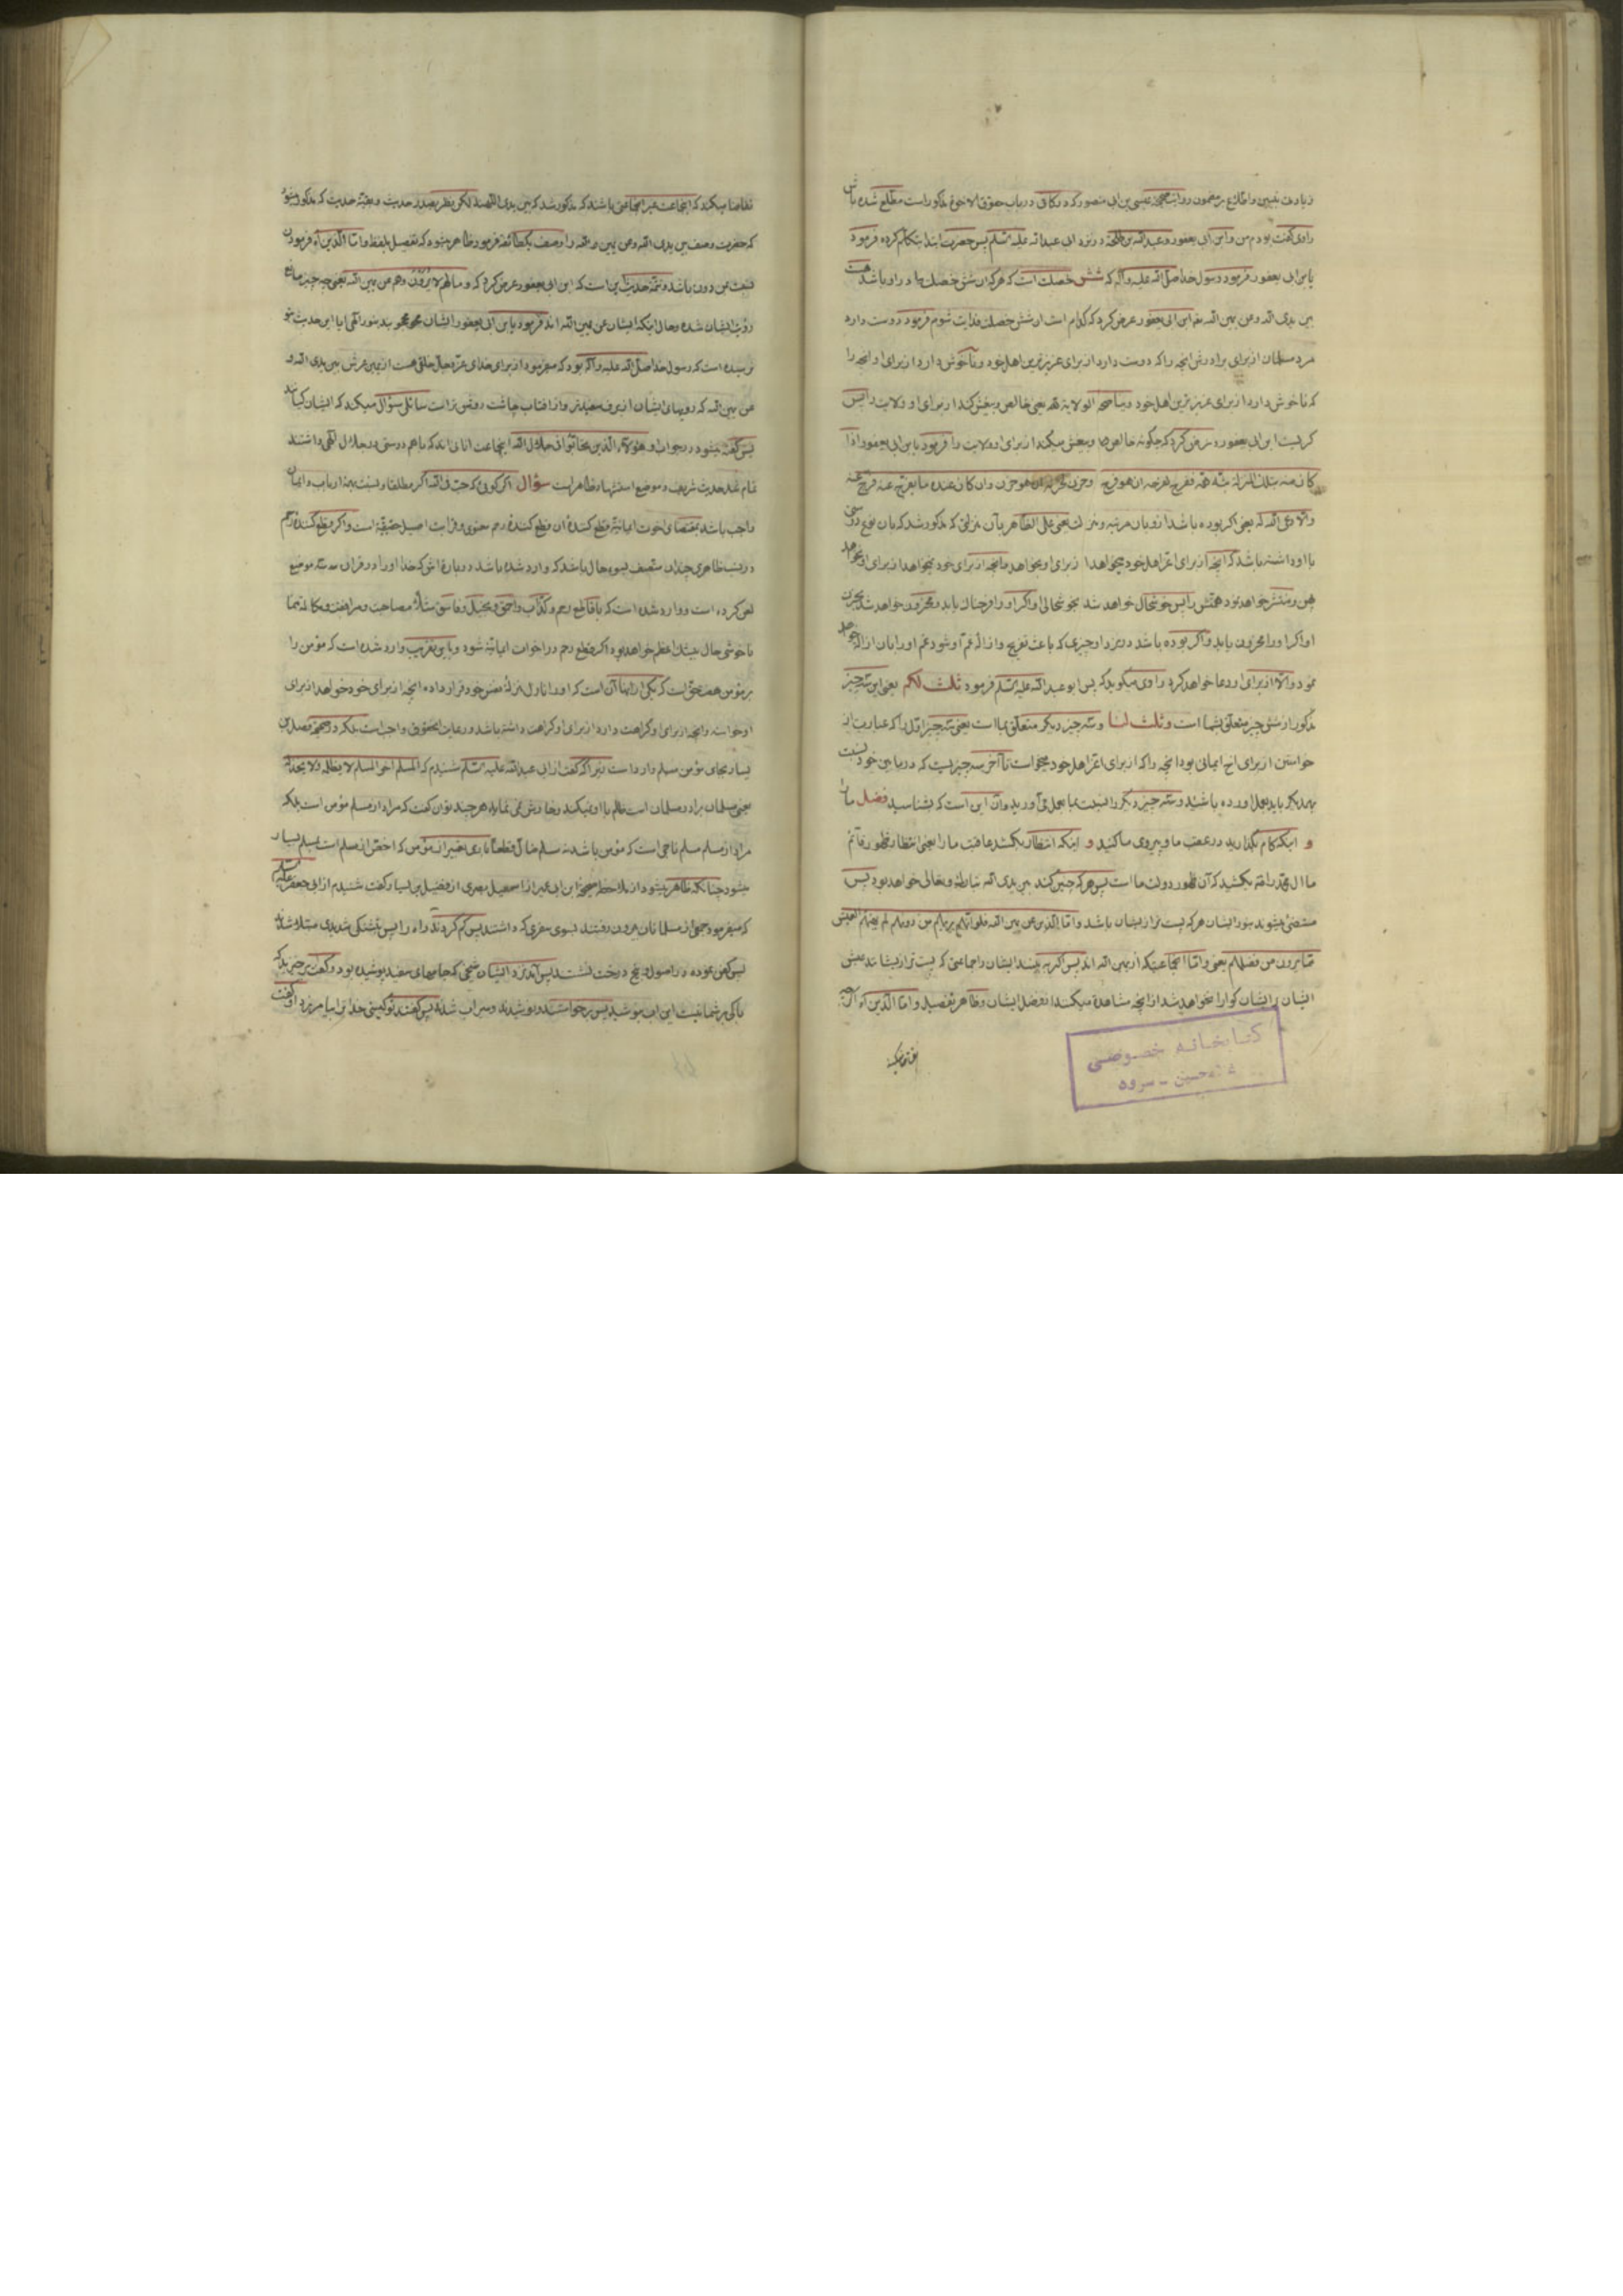 زیادت تبیین و اطلاع بر مضمون روایت صحیحه عیسی بن ابی منصور که در کافی در باب حقوق الاخوة مذکور است مطلع شده باش
راوی گفت بودم من و ابن ابی یعفور و عبدالله بن طلحه در نزد ابی عبدالله علیه السلم پس حضرت ابتدا بتکلم کرده فرمود
یابن ابی یعفور فرمود رسول خدا صلی الله علیه و آله که شش خصلت است که هر که ان شش خصلت ها در او باشد هست
بین یدی الله و عن یمین الله پس ابن ابی یعفور عرض کرد که کدام است ان شش خصلت فدایت شوم فرمود دوست دارد
مرد مسلمان از برای برادرش انچه را که دوست دارد از برای عزیزترین اهل خود و ناخوش دارد از برای او انچه را
که ناخوش دارد از برای عزیزترین اهل خود و یناصحه الولایة یعنی خالص و بیغش کند از برای او ولایت را پس
گریست ابن ابی یعفور و عرض کرد که چگونه خالص و بیغش میکند از برای او ولایت را فرمود یابن ابی یعفور اذا
کان منه بتلک المنزلة بثه همه ففرح لفرحه ان هو فرح و حزن لحزنه ان هو حزن و ان کان عنده ما یفرج عنه فرج عنه
والا دعی الله له یعنی اگر بوده باشد از او بان مرتبه و منزلت یعنی علی الظاهر بآن منزلتی که مذکور شد که بان نوع دوستی
با او داشته باشد که انچه از برای اعز اهل خود میخواهد از برای او بخواهد و انچه از برای خود نمیخواهد از برای او نخواهد
پهن و منتشر خواهد نمود همتش را پس خوشحال خواهد شد بخوشحالی او اگر او را فرحناک یابد و محزون خواهد شد بحزن
او اگر او را محزون یابد و اگر بوده باشد در نزد او چیزی که باعث تفریح و ازاله غم او شود غم او را بان ازاله خواهد
نمود والا از برای او دعا خواهد کرد راوی میگوید که پس ابو عبدالله علیه السلم فرمود ثلث لکم یعنی این سه چیز
مذکور از شش چیز متعلق بشما است و ثلث لنا و سه چیز دیگر متعلق بما است یعنی سه چیز اول را که عبارت از
خواستن از برای اخ ایمانی بود انچه را که از برای اعز اهل خود میخواست تا آخر سه چیزیست که در ما بین خود نسبت
بهمدیگر باید بعمل اورده باشید و سه چیز دیگر را نسبت بما بعمل می آورید و ان این است که بشناسید فضل ما را
و اینکه کام بگذارید در عقب ما و پیروی ما کنید و اینکه انتظار بکشید عاقبت ما را یعنی انتظار ظهور قائم
ما ال محمد را بکشید که آن ظهور دولت ما است پس هر که چنین کند بین یدی الله تبارک و تعالی خواهد بود پس
مستضئ میشوند بنور ایشان هر که پست تر از ایشان باشد و اما الذین عن یمین الله فلو انهم یریهم من دونهم لم یهنئهم العیش
مما یرون من فضلهم یعنی و اما انجماعتیکه از یمین الله اند پس اگر به بینند ایشان را جماعتی که پست تر از ایشانند عیش
ایشان بر ایشان گوارا نخواهد شد از انچه مشاهده میکنند از فضل ایشان و ظاهر تفصیل و اما الذین اه آنکه
تقاضا میکند
کتابخانه خصوصی
حسین - سروه
تقاضا میکند که انجماعت غیر انجماعتی باشند که مذکور شد که بین یدی اللهند لکن نظر بصدر حدیث و بقیه حدیث که مذکور میشود
که حضرت وصف بین یدی الله و عن یمین الله را وصف یک طائفه فرمود ظاهر میشود که تفصیل بلفظ و اما الذین اه فرمودن
نسبت بمن دون باشد و تتمه حدیث این است که ابن ابی یعفور عرض کرد که و ما لهم لا یرون و هم عن یمین الله یعنی چه چیز مانع
رؤیت ایشان شده و حال اینکه ایشان عن یمین الله اند فرمود یابن ابی یعفور ایشان محجوبند بنور الهی ایا این حدیث بتو
نرسیده است که رسول خدا صلی الله علیه و آله بود که میفرمود از برای خدای عز و جل خلقی هست از یمین عرش بین یدی الله و
عن یمین الله که رویهای ایشان از برف سفیدتر و از افتاب چاشت روشن تر است سائلی سؤال میکند که ایشان کیانند
پس گفته میشود در جواب او هؤلاء الذین تحابوا فی جلال الله اینجماعت انانی اند که با هم دوستی در جلال الهی داشتند
تمام شد حدیث شریف و موضع استشهاد ظاهر است سؤال اگر گوئی که حب فی الله اگر مطلقا و نسبت بهمه ارباب و ایمان
واجب باشد بمقتضای اخوت ایمانیه قطع کننده ان قطع کننده رحم معنوی و قرابت اصیل حقیقیه است و اگر قطع کننده رحم
در نسب ظاهری چندان متصف بسوء حال باشد که وارد شده باشد در باره اش که خدا او را در قران سه موضع
لعن کرده است و وارد شده است که با قاطع رحم و کذاب و احمق و بخیل و فاسق مثلا مصاحبت و مرافقت و مکالمه منما
ناخوشی حال بیشک اعظم خواهد بود اگر قطع رحم در اخوات ایمانیه شود و باین تقریب وارد شده است که مؤمن را
بر مؤمن هفت حق است که یکی از اینها آن است که او را نازل منزله نفس خود قرار داده انچه از برای خود خواهد از برای
او خواسته و انچه از برای او کراهت دارد از برای او کراهت داشته باشد و رعایت این حقوق واجب است بلکه در صحیحه فضیل بن
یسار بجای مؤمن مسلم وارد است زیرا که گفت از ابی عبدالله علیه السلم شنیدم که المسلم اخو المسلم لا یظلمه و لا یخذله
یعنی مسلمان برادر مسلمان است ظلم با او نمیکند و خارش نمی نماید هر چند توان گفت که مراد از مسلم مؤمن است بلکه
مراد از مسلم مسلم ناجی است که مؤمن باشد نه مسلم ضال و قطعا تادی تعبیر از مؤمن که اخص از مسلم است بمسلم بسیار
میشود چنانکه ظاهر میشود از ملاحظه صحیحه ابن ابی عمیر از اسمعیل بصری از فضیل بن یسار که گفت شنیدم از ابی جعفر علیه السلم
که میفرمود جمعی از مسلمانان بیرون رفتند بسوی سفری که داشتند پس گم کردند راه را پس بتشنگی شدیدی مبتلا شدند
پس کفن نموده در اصول و بیخ درخت نشستند پس آمد نزد ایشان شیخی که جامهای سفید پوشیده بود و گفت برخیزید که
باکی بر شما نیست این اب بنوشید پس برخواستند و نوشیدند و سیراب شدند پس گفتند تو کیستی خدا ترا بیامرزد او گفت